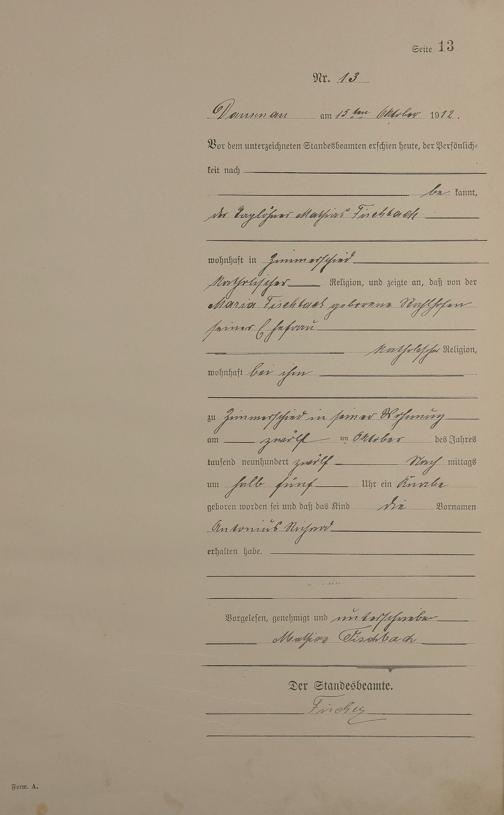 Seite 13
Nr. 13
am 15ten Oktober 1912.
Vor dem unterzeichneten Standesbeamten erschien heute, der Persönlich-
keit nach
be kannt,
der Taglöhner Mathias Fischbach
wohnhaft in Zimmerschied
katholischer Religion, und zeigte an, daß von der
Maria Fischbach geborene
seiner Ehefrau
katholischer Religion,
wohnhaft bei ihm
zu Zimmerschied in seiner Wohnung
am zwölf ten Oktober des Jahres
tausend neunhundert zwölf Nach mittags
um halb fünf Uhr ein Knabe
geboren worden sei und daß das Kind die Vornamen
Antonius Richard
erhalten habe.
Vorgelesen, genehmigt und unterschrieben
Mathias Fischbach
Der Standesbeamte.
Form. A.